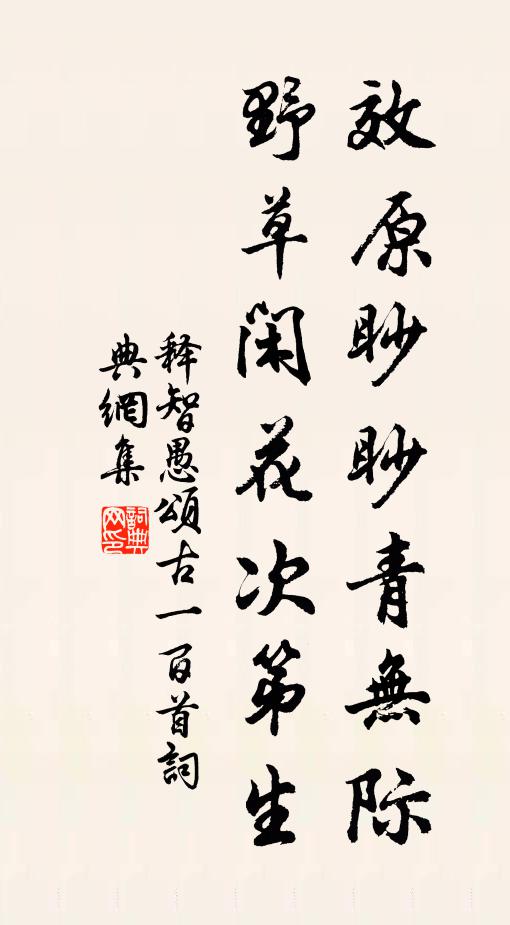 效原眇眇青無际
野草闲花次第生
释智愚頌古一百首詞
典網集
詞典网印